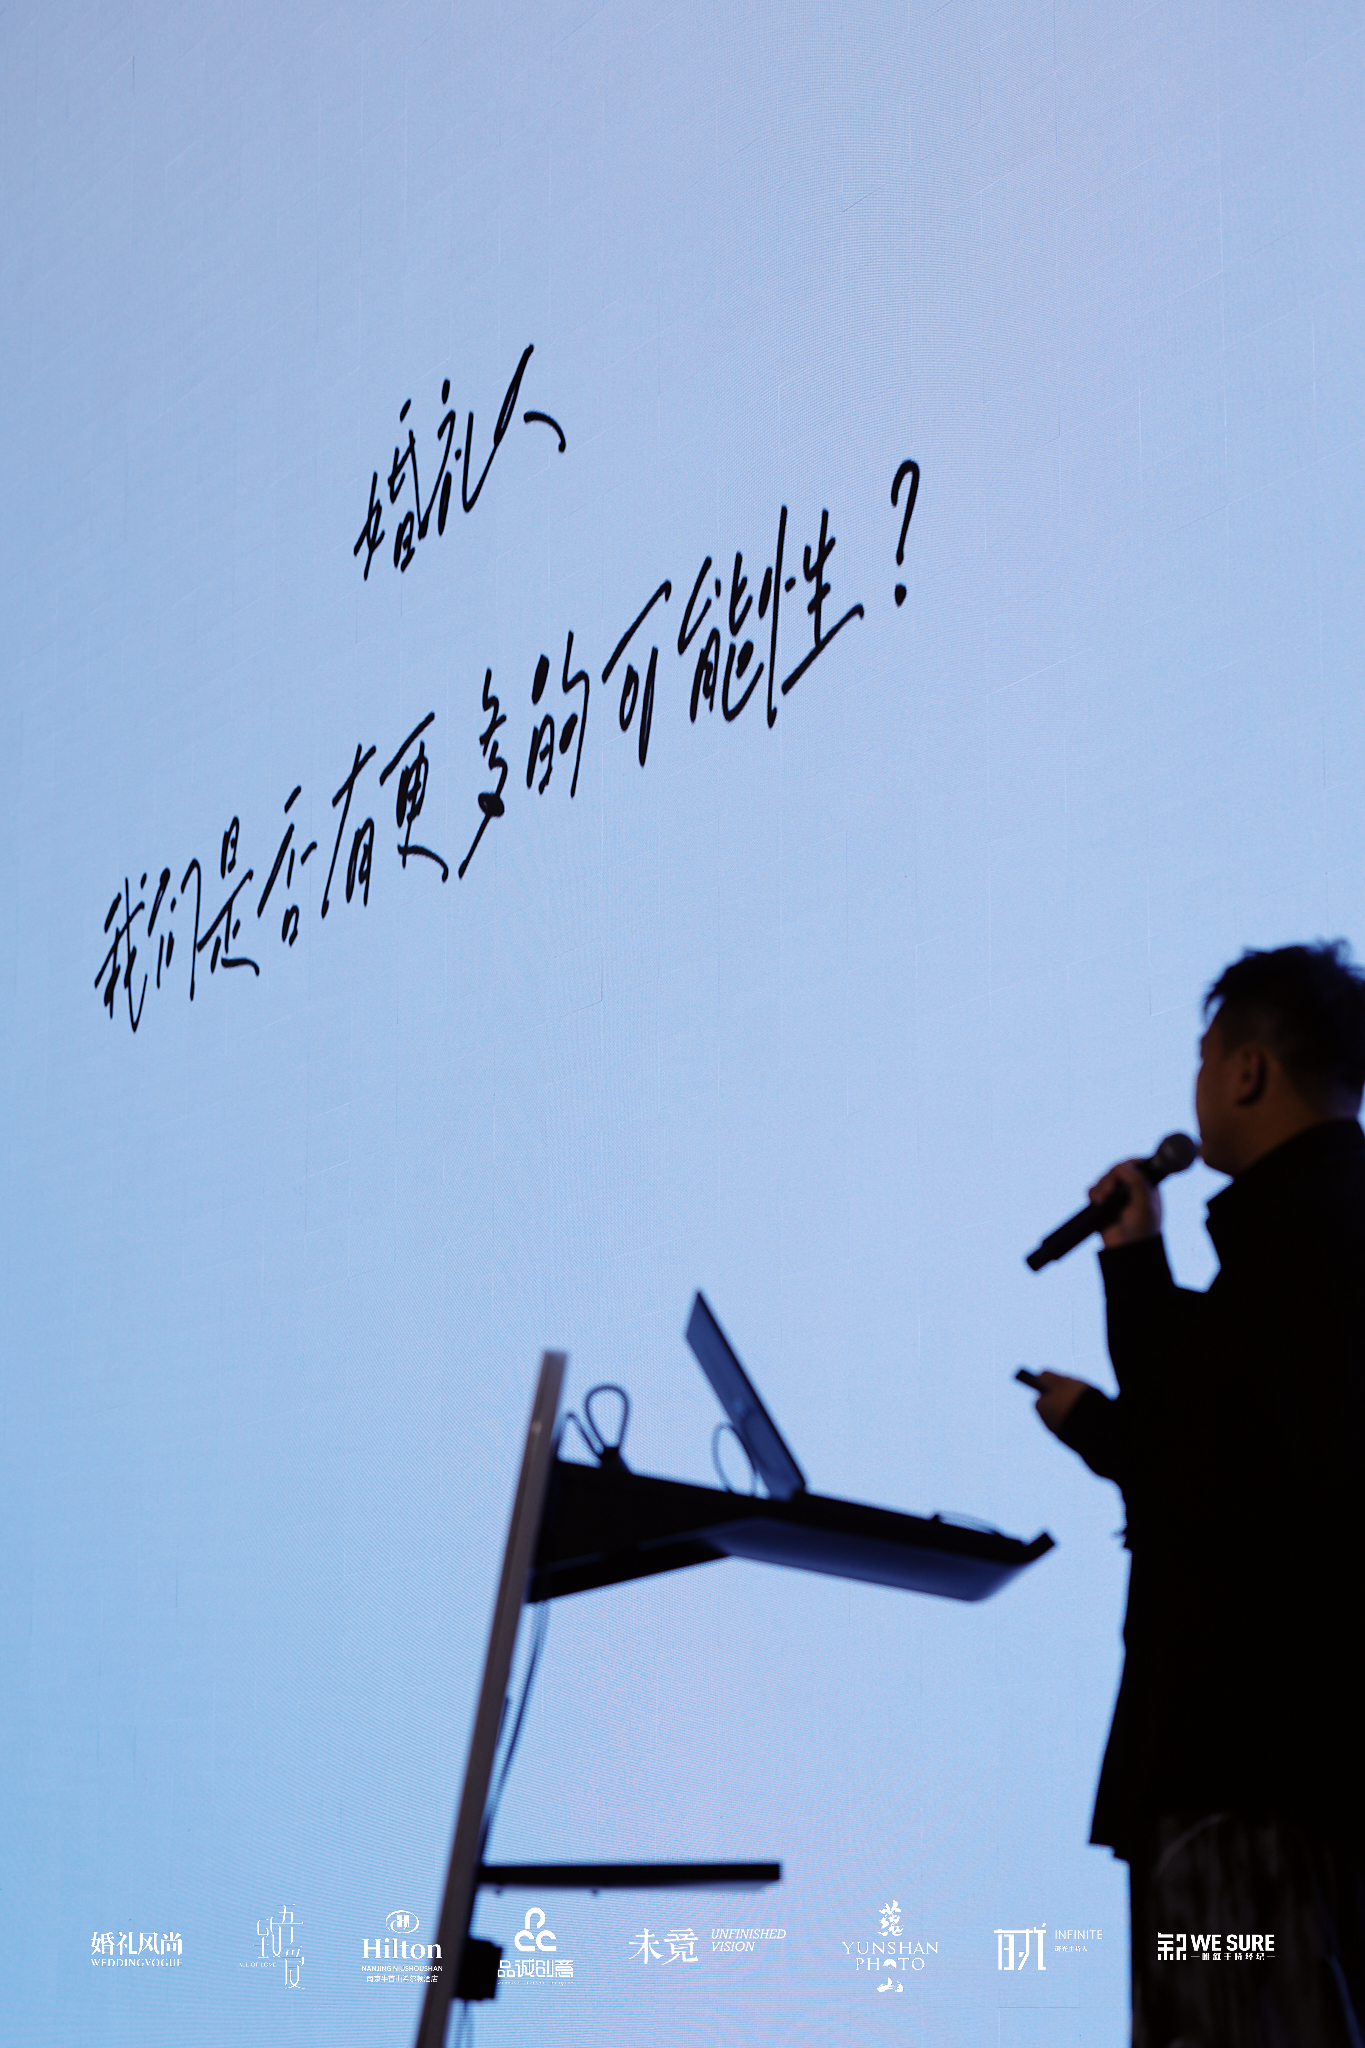 婚礼人
我们是否有更多的可能性？
婚礼风尚
WEDDINGVOGUE
Hilton
NANJING NIUSHOUSHAN
品诚创意
未竟 UNFINISHED
VISION
YUNSHAN
PHOTO
INFINITE
WE SURE